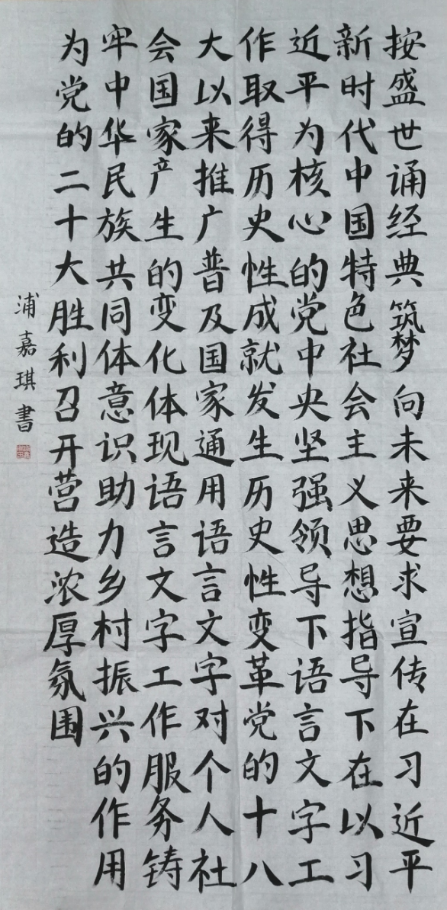 按盛世诵经典筑梦向未来要求宣传在习近平
新时代中国特色社会主义思想指导下在以习
近平为核心的党中央坚强领导下语言文字工
作取得历史性成就发生历史性变革党的十八
大以来推广普及国家通用语言文字对个人社
会国家产生的变化体现语言文字工作服务铸
牢中华民族共同体意识助力乡村振兴的作用
为党的二十大胜利召开营造浓厚氛围
浦嘉琪書